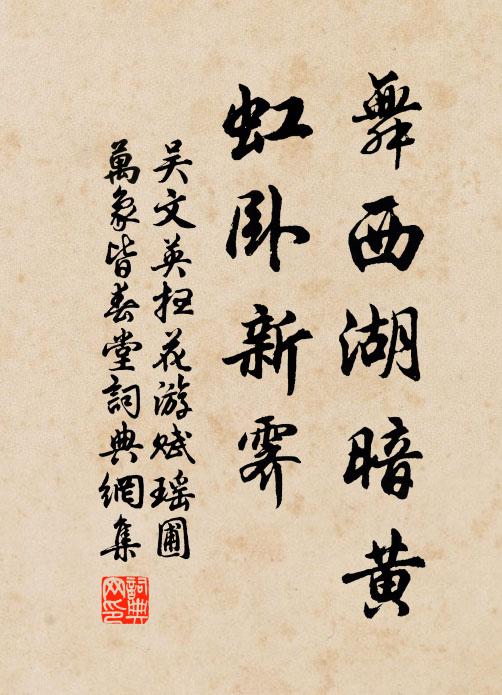 舞西湖暗黄
虹卧新霽
吴文英扫花游赋瑶圃
萬象皆春堂詞典網集
詞典网印